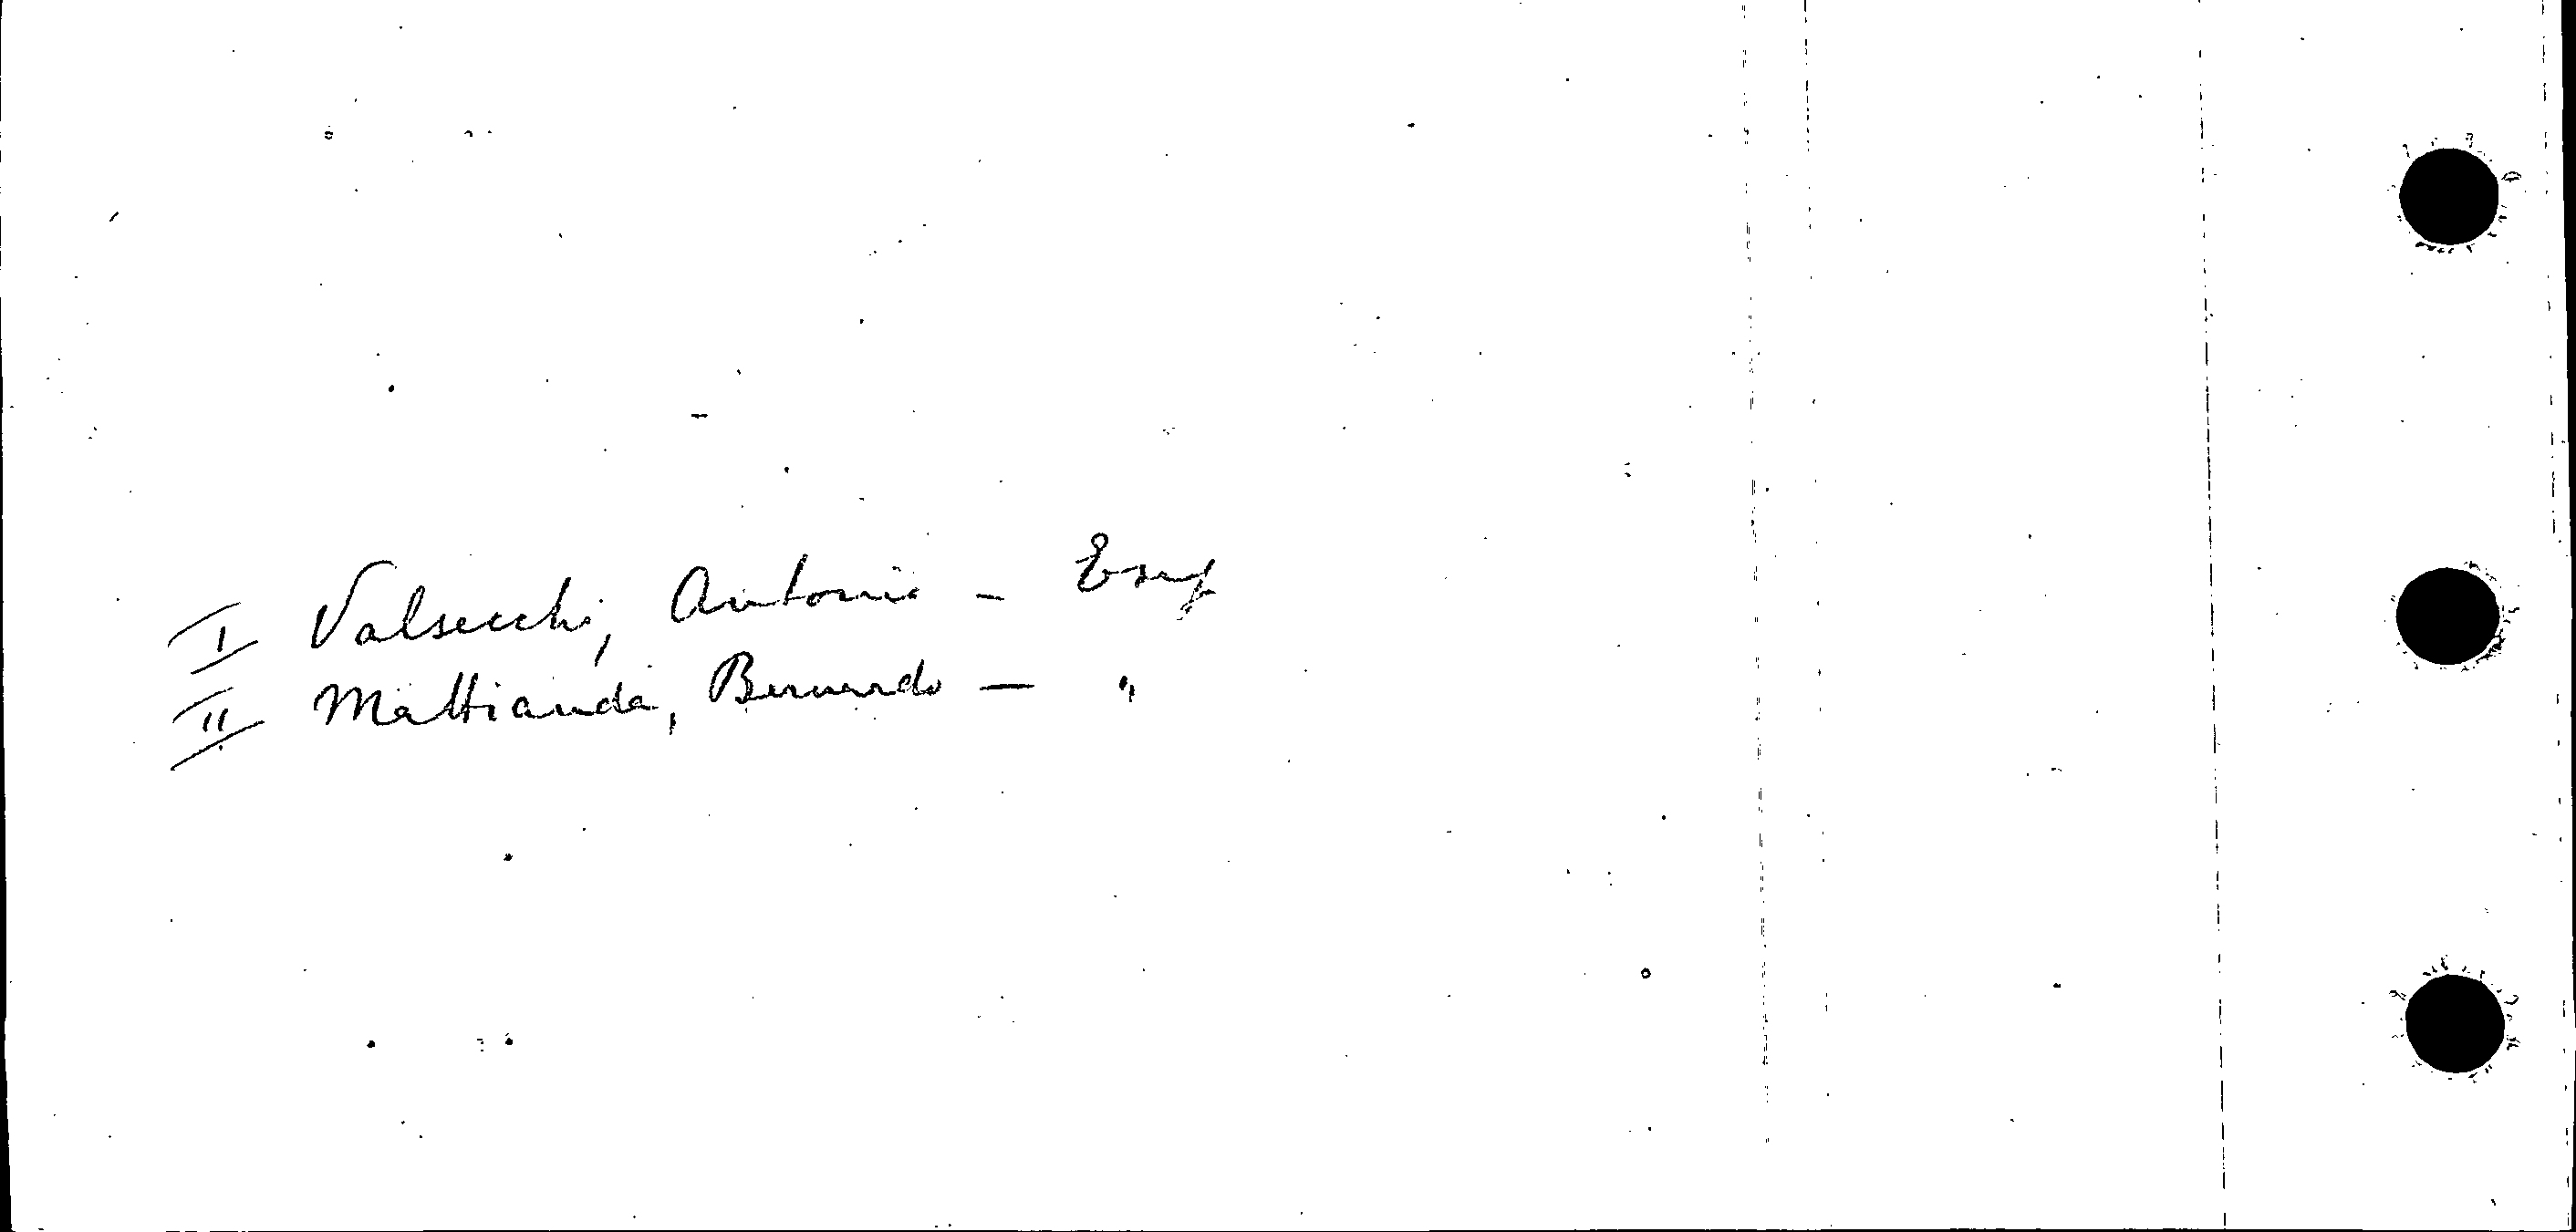 I Valsecchi, Antonio - Esq
II Mattianda, Bernardo - "